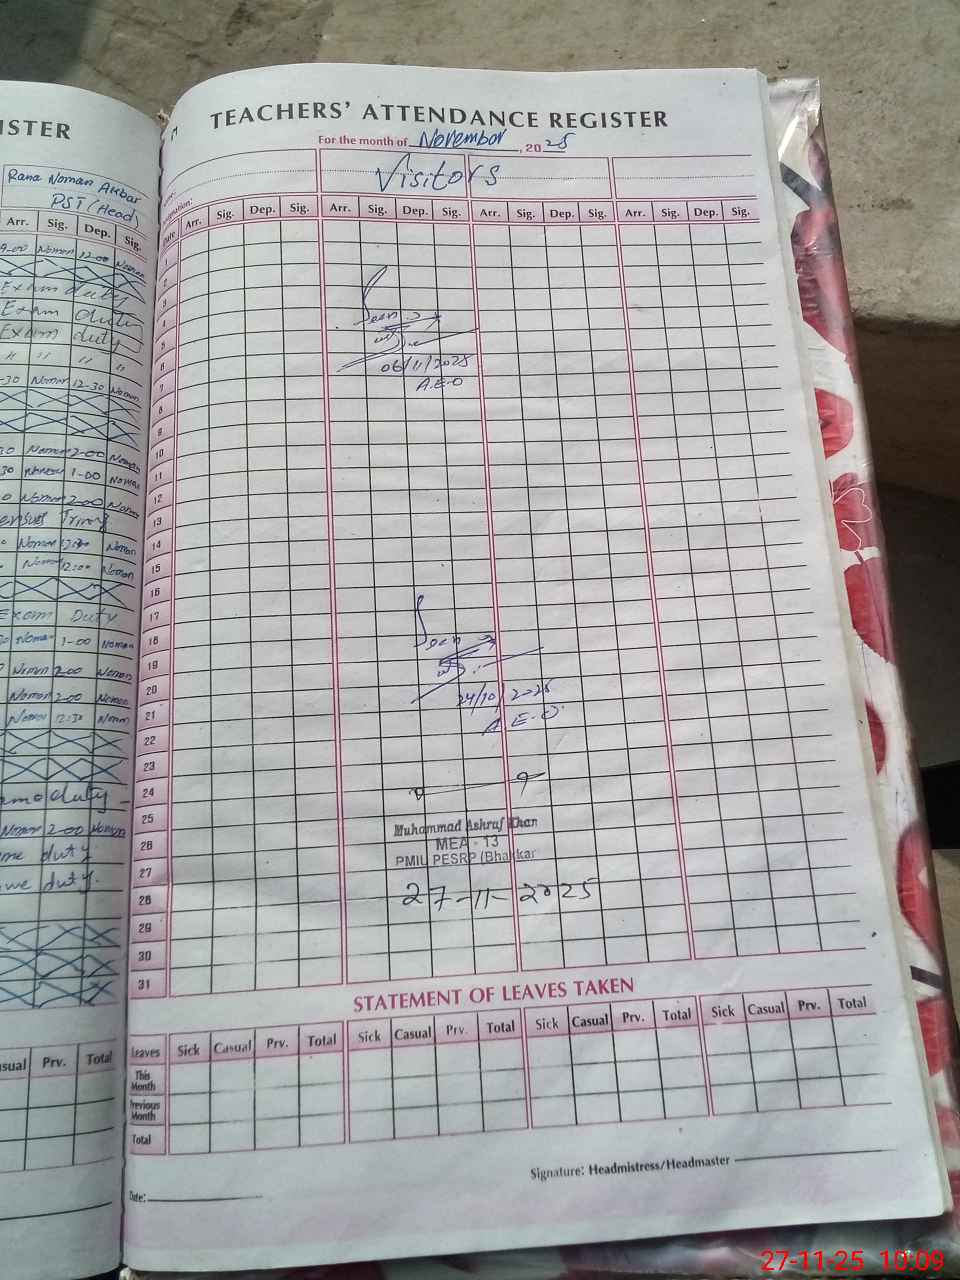 ISTER
Rana Noman Akbar
PST (Head)
Arr. Sig. Dep. Sig.
9-00 Noman 12-00 Noman
Exam duty
Exam duty
Exam duty
" " " "
-30 Noman 12-30 Noman
Noman 2-00 Noman
30 Noman 1-00 Noman
0 Noman 2-00 Noman
Noman Noman
Noman 12:00 Noman
Exam Duty
Noman 1-00 Noman
Noman 2-00 Noman
Noman 2-00 Noman
Noman 12:30 Noman
duty
Noman 2-00 Noman
duty
duty.
asual Prv. Total
TEACHERS' ATTENDANCE REGISTER
For the month of November, 2025
Visitors
Date Arr. Sig. Dep. Sig. Arr. Sig. Dep. Sig. Arr. Sig. Dep. Sig. Arr. Sig. Dep. Sig.
1
2
3
4
Seen
5
6
06/11/2025
7
A.E.O
8
9
10
11
12
13
14
15
16
17
18
Seen
19
20
24/10/2025
21
A.E.O.
22
23
24
25
Muhammad Ashraf Khan
26
MEA - 13
27
PMIU PESRP (Bhakkar
28
27-11-2025
29
30
31
STATEMENT OF LEAVES TAKEN
Leaves Sick Casual Prv. Total Sick Casual Prv. Total Sick Casual Prv. Total Sick Casual Prv. Total
This Month
Previous Month
Total
Signature: Headmistress/Headmaster
Date:
27-11-25 10:09